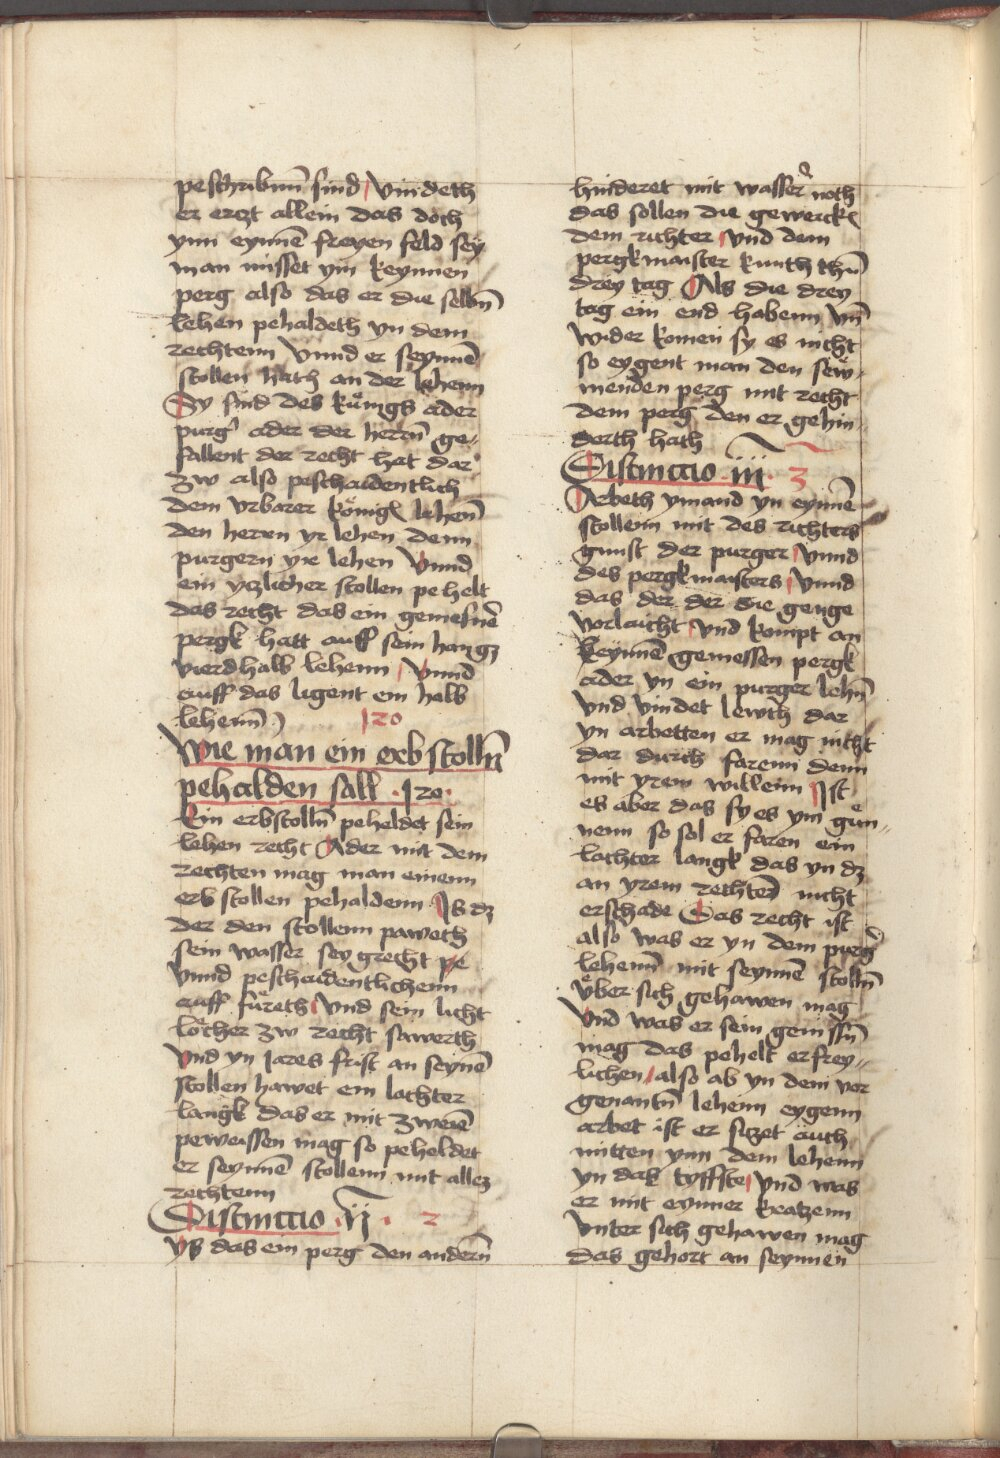 peschribnn̄ sind / Vindeth
er erczt allein das doch
ynn eynnē freyen feld sey
man misset ym keynnen
perg also das er die selbn̄
lehen pehaldeth yn dem
rechtenn Vnnd er seynnē
stollen hath an der lehenn
Sy sind des künigs ader
purg' ader der herrn̄ ge„
fallent der recht hat dar
zw also peschaidentlich
dem vrbarer königs lehen̄
den herren yr lehen denn
purgern yre lehen Vnnd
ein yczlicher stollen pehelt
das recht das ein gemesnē
pergk hatt auff sein hangz
vierdhalb lehenn / Vnnd
auff das ligent ein halb
lehenn̄
120
Wie man ein erbstolln̄
pehalden sall · 120 ·
Ein erbstolln̄ peheldet sein
lehen recht Ader mit dem
rechten mag man einenn
erbstollen pehaldenn Is dz
der den stollenn paweth
sein wasser seygrecht pe
Vnnd peschaidentlichenn
auff füreth / Vnd sein licht
löcher zw recht sawerth
Vnd yn Jares frist an seynē
stollen hawet ein lachter
langk das er mit zweiē
peweissen mag so peheldet
er seynnē stollenn mit allez
rechtenn
Distinctio · ij · 2
yß das ein perg den andern̄
hinderet mit wasser noth
das sollen die gewercken
dem richter / Vnd dem
pergkmaister kunth thū
drey tag Als die drey
tag ein end habenn Vn̄
wider komen sy es nicht
so eygent man den sew„
menden perg mit recht
dem perg den er gehin„
derth hath
Distinctio · iij · 3
Arbeth ymand yn eynnē
stollenn mit des richters
gunst der purger / Vnnd
des pergkmaisters / Vnnd
das der der die genge
vorlaicht / Vnd kompt an
keynnē gemessen pergk
ader yn ein purger lehn̄
Vnd vindet lewth dar
yn arbetten er mag nicht
dar durch farenn denn
mit yrem willenn Ist
es aber das sy es ym gün„
nenn so sol er faren ein
lachter langk das yn dz
an yrem rechten nicht
erschade Das recht ist
also was er yn dem purg'
lehenn̄ mit seynnē stolln̄
über sich gehawen mag
Vnd was er sein genissn̄
mag das pehelt er frey„
lichen / also ab yn dem vor
genantn̄ lehenn eygenn
arbet ist er siczet auch
mitten ynn dem lehenn
yn das tyffste / Vnd was
er mit eynner kratzenn
Vnter sich gehawen mag
das gehort an seynnen